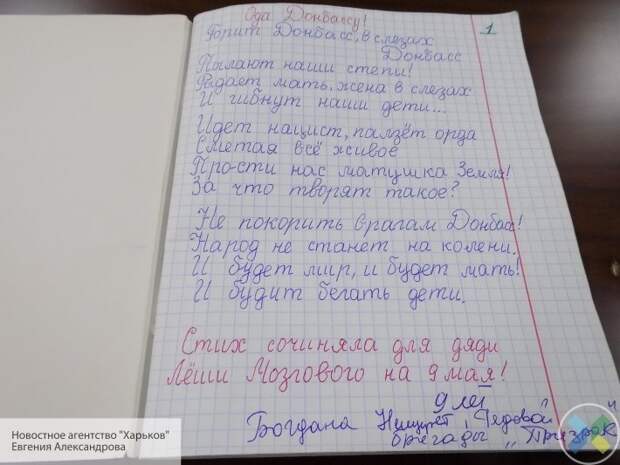 Ода Донбассу!
1
Горит Донбасс, в слезах
Донбасс
Пылают наши степи!
Рыдает мать, жена в слезах
И гибнут наши дети...
Идет нацист, палзёт орда
Сметая всё живое
Про-сти нас матушка Земля!
За что творят такое?
Не покорить врагам Донбасс!
Народ не станет на колени.
И будет мир, и будет мать!
И будит бегать дети.
Стих сочиняла для дяди
Лёши Мозгового на 9 мая!
9 лет
Богдана
бригады „Призрак"
Новостное агентство "Харьков"
Евгения Александрова